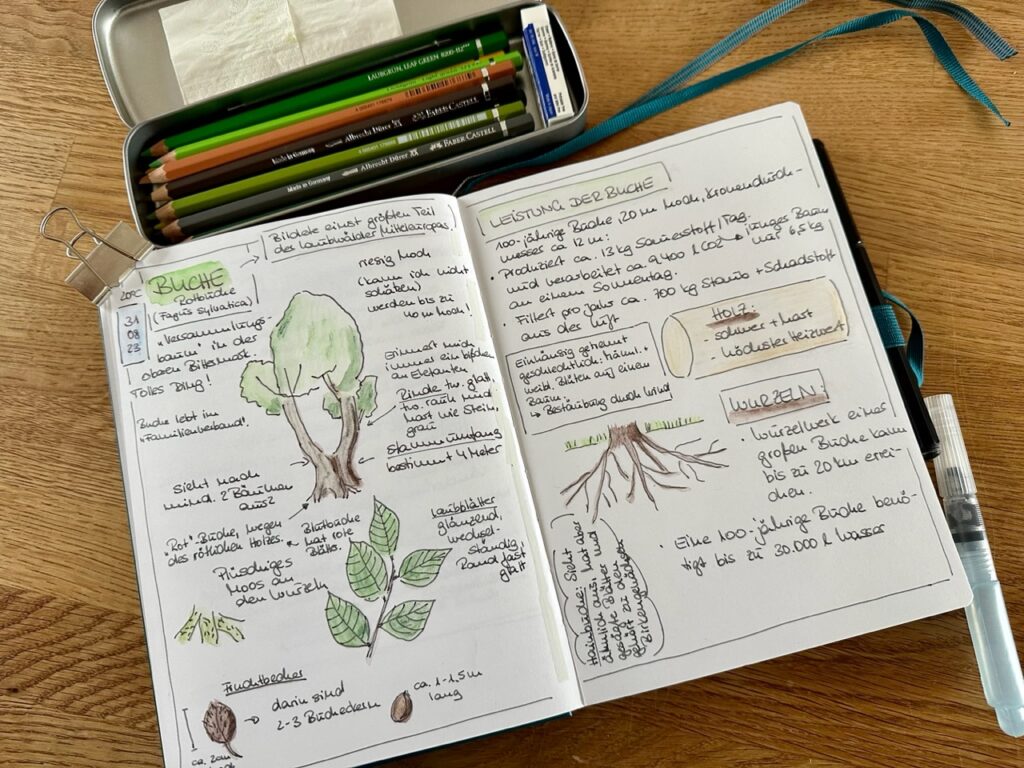 LAUBGRÜN, LEAF GREEN 8200-112***
Made in Germany
Albrecht Dürer
FABER CASTELL
Made in Germany
Albrecht Dürer
FABER-CASTELL
20°C
31
08
23
BUCHE
Rotbuche
(Fagus sylvatica)
Bildete einst größten Teil
der Laubwälder Mitteleuropas.
"Versammlungs-
baum" in der
oberen Bittesmark.
Tolles Ding!
Buche lebt im
"Familienverband".
Sieht nach
mind. 2 Bäumen
aus?
riesig hoch
(kann ich nicht
schätzen)
werden bis zu
40 m hoch!
Erinnert mich
immer ein bißchen
an Elefanten
Rinde tw. glatt,
tw. rauh und
hart wie Stein,
grau
Stammumfang
bestimmt 4 Meter
"Rot"-Buche, wegen
des rötlichen Holzes.
Blutbuche
hat rote
Blätter.
Laubblätter
glänzend,
wechsel-
ständig,
Rand fast
glatt
Plüschiges
Moos an
den Wurzeln
Fruchtbecher
darin sind
2-3 Bucheckern
ca. 1-1,5 m
lang
ca. 2cm
LEISTUNG DER BUCHE
100-jährige Buche, 20 m hoch, Kronendurch-
messer ca 12 m:
• Produziert ca. 13 kg Sauerstoff/Tag.
und verarbeitet ca. 9400 l CO2
an einem Sonnentag.
junges Baum
nur 6,5 kg
• Filtert pro Jahr ca. 700 kg Staub + Schadstoff
aus der Luft
Einhäusig getrennt
geschlechtlich: männl. +
weibl. Blüten auf einem
Baum.
↳ Bestäubung durch Wind
HOLZ:
- schwer + hart
- höchster Heizwert
WURZELN:
• Wurzelwerk einer
großen Buche kann
bis zu 20 km errei-
chen.
• Eine 100-jährige Buche benö-
tigt bis zu 30.000 l Wasser
Hainbuche: Sieht aber
ähnlich aus, hat aber
gesägte Blätter und
gehört zu den
Birkengewächsen